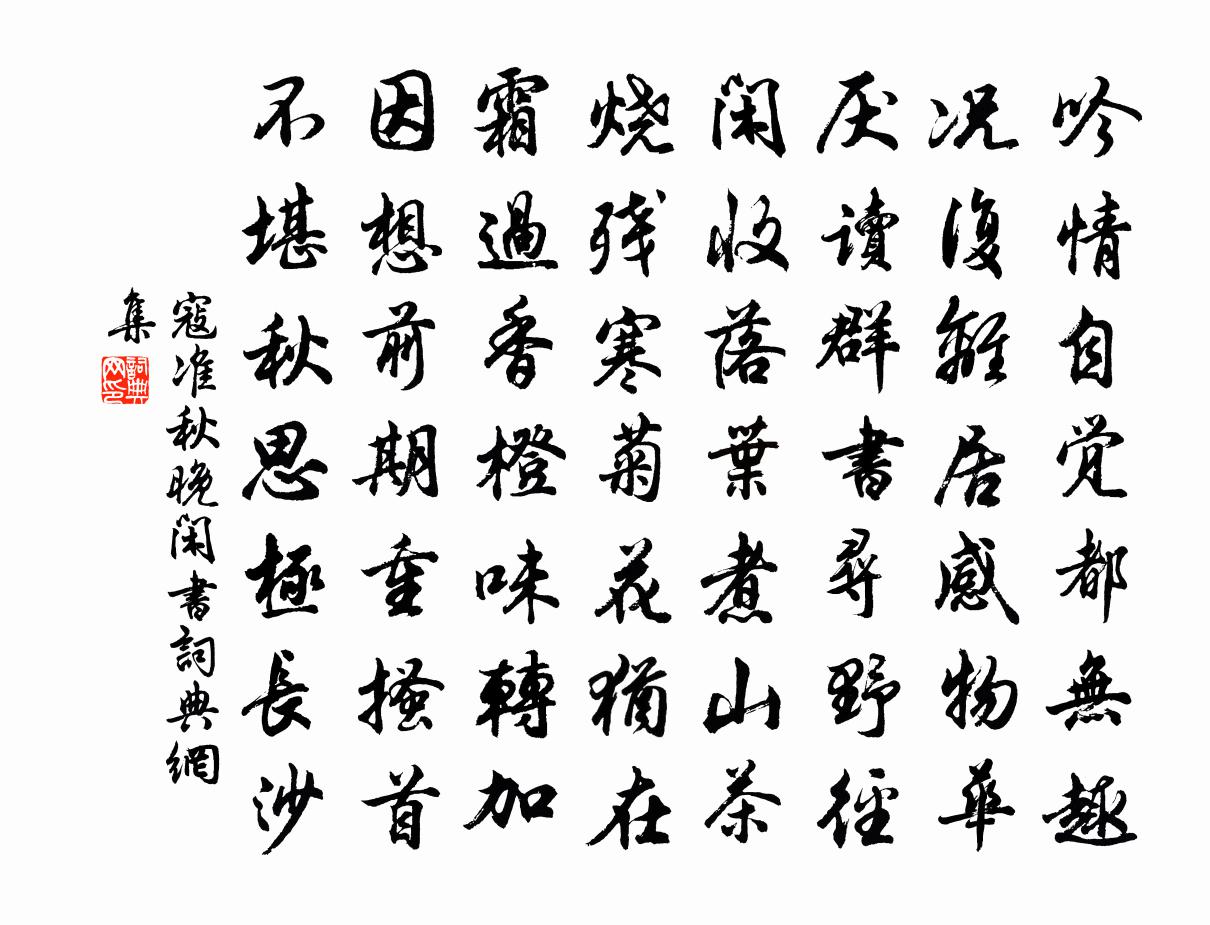 吟情自觉都無趣
况復離居感物華
厌讀群書尋野徑
闲收落葉煮山茶
烧残寒菊花猶在
霜過香橙味轉加
因想前期重搔首
不堪秋思極長沙
寇准秋晚闲書詞典網
集
詞典網印